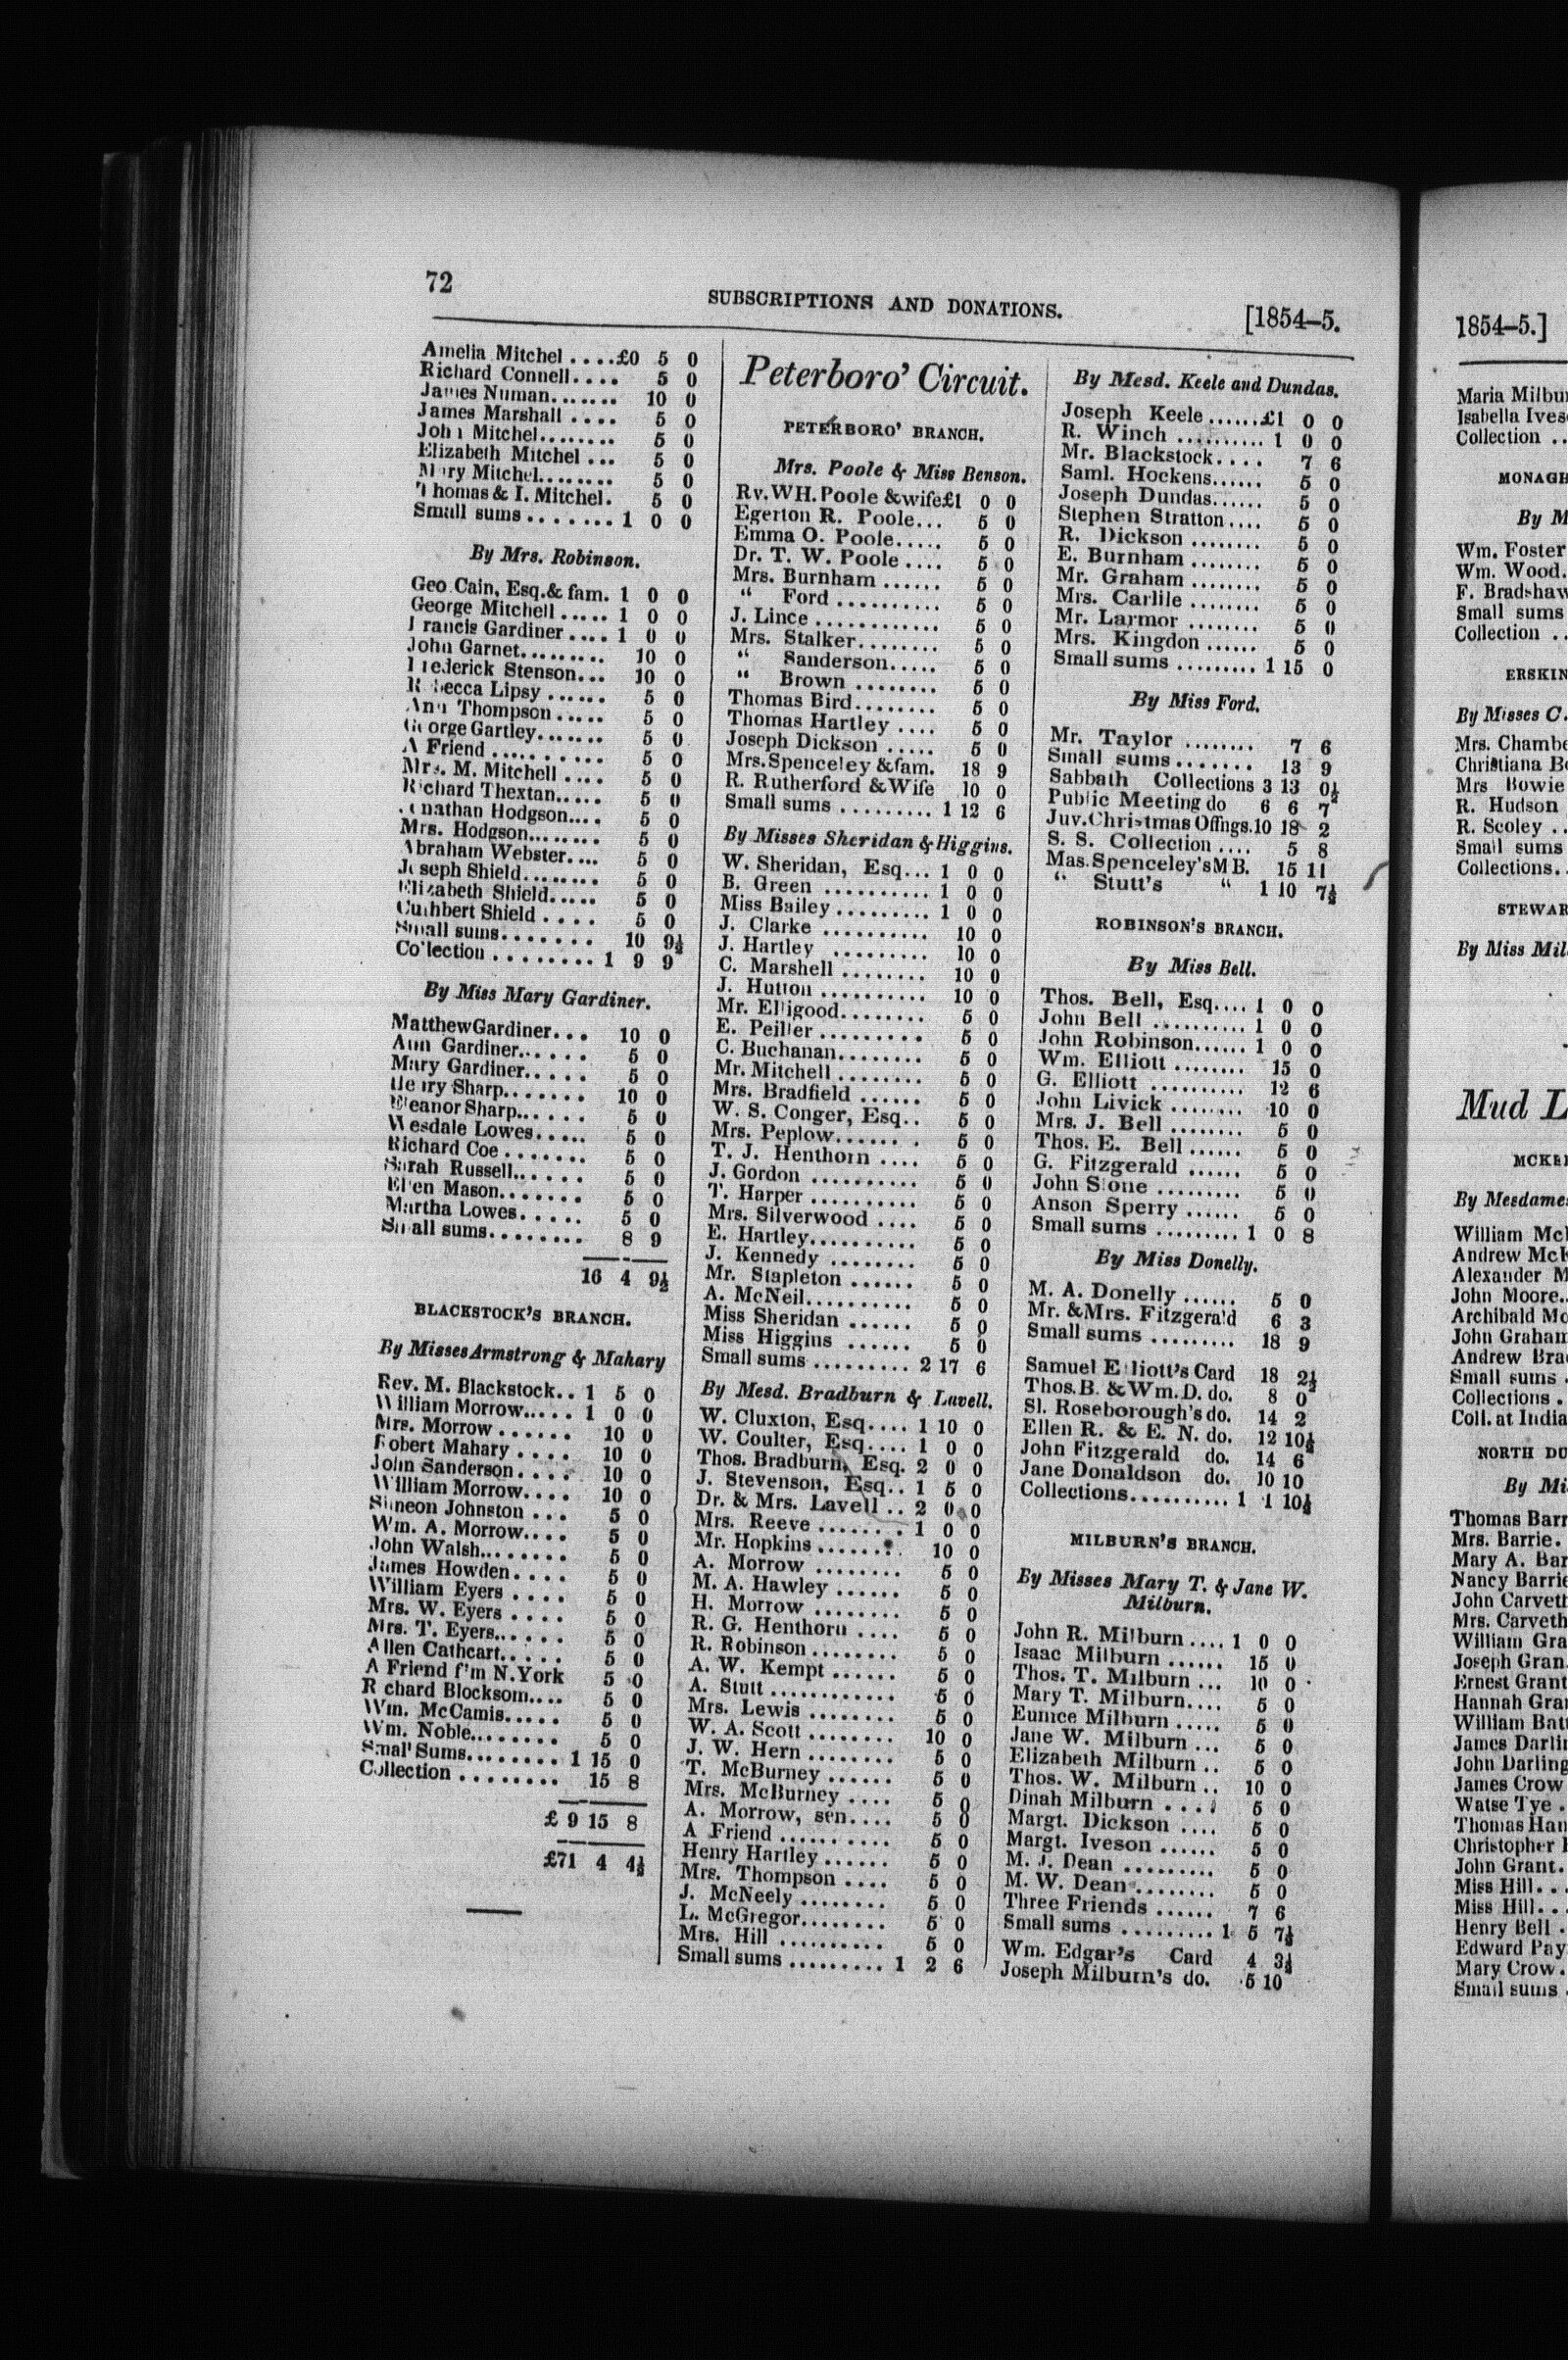 72
SUBSCRIPTIONS AND DONATIONS.
[1854–5.
Amelia Mitchel ....£0 5 0
Richard Connell.... 5 0
James Numan....... 10 0
James Marshall .... 5 0
John Mitchel........ 5 0
Elizabeth Mitchel ... 5 0
Mary Mitchel........ 5 0
Thomas & I. Mitchel. 5 0
Small sums ....... 1 0 0
By Mrs. Robinson.
Geo Cain, Esq. & fam. 1 0 0
George Mitchell ..... 1 0 0
Francis Gardiner .... 1 0 0
John Garnet......... 10 0
Frederick Stenson... 10 0
Rebecca Lipsy ...... 5 0
Ann Thompson ..... 5 0
George Gartley....... 5 0
A Friend .......... 5 0
Mrs. M. Mitchell .... 5 0
Richard Thextan..... 5 0
Jonathan Hodgson.... 5 0
Mrs. Hodgson........ 5 0
Abraham Webster.... 5 0
Joseph Shield........ 5 0
Elizabeth Shield..... 5 0
Cuthbert Shield .... 5 0
Small sums....... 10 9½
Collection ........ 1 9 9
By Miss Mary Gardiner.
Matthew Gardiner... 10 0
Ann Gardiner...... 5 0
Mary Gardiner..... 5 0
Henry Sharp....... 10 0
Eleanor Sharp...... 5 0
Wesdale Lowes..... 5 0
Richard Coe ....... 5 0
Sarah Russell...... 5 0
Ellen Mason....... 5 0
Martha Lowes..... 5 0
Small sums........ 8 9
16 4 9½
BLACKSTOCK'S BRANCH.
By Misses Armstrong & Mahary
Rev. M. Blackstock.. 1 5 0
William Morrow..... 1 0 0
Mrs. Morrow ...... 10 0
Robert Mahary .... 10 0
John Sanderson .... 10 0
William Morrow.... 10 0
Simeon Johnston ... 5 0
Wm. A. Morrow.... 5 0
John Walsh........ 5 0
James Howden.... 5 0
William Eyers .... 5 0
Mrs. W. Eyers .... 5 0
Mrs. T. Eyers...... 5 0
Allen Cathcart..... 5 0
A Friend f'm N. York 5 0
Richard Blocksom.... 5 0
Wm. McCamis..... 5 0
Wm. Noble........ 5 0
Small Sums........ 1 15 0
Collection ........ 15 8
£ 9 15 8
£71 4 4½
Peterboro' Circuit.
PETERBORO' BRANCH.
Mrs. Poole & Miss Benson.
Rv. WH. Poole & wife £1 0 0
Egerton R. Poole... 5 0
Emma O. Poole..... 5 0
Dr. T. W. Poole .... 5 0
Mrs. Burnham ...... 5 0
" Ford .......... 5 0
J. Lince ............ 5 0
Mrs. Stalker........ 5 0
" Sanderson..... 5 0
" Brown ........ 5 0
Thomas Bird........ 5 0
Thomas Hartley .... 5 0
Joseph Dickson ..... 5 0
Mrs. Spenceley & fam. 18 9
R. Rutherford & Wife 10 0
Small sums ......... 1 12 6
By Misses Sheridan & Higgins.
W. Sheridan, Esq... 1 0 0
B. Green .......... 1 0 0
Miss Bailey ......... 1 0 0
J. Clarke .......... 10 0
J. Hartley ......... 10 0
C. Marshell ........ 10 0
J. Hutton .......... 10 0
Mr. Elligood........ 5 0
E. Peiller ......... 5 0
C. Buchanan........ 5 0
Mr. Mitchell ........ 5 0
Mrs. Bradfield ...... 5 0
W. S. Conger, Esq.. 5 0
Mrs. Peplow...... . 5 0
T. J. Henthorn .... 5 0
J. Gordon .......... 5 0
T. Harper .......... 5 0
Mrs. Silverwood .... 5 0
E. Hartley.......... 5 0
J. Kennedy ........ 5 0
Mr. Stapleton ...... 5 0
A. McNeil.......... 5 0
Miss Sheridan ...... 5 0
Miss Higgins ...... 5 0
Small sums ......... 2 17 6
By Mesd. Bradburn & Lavell.
W. Cluxton, Esq.... 1 10 0
W. Coulter, Esq.... 1 0 0
Thos. Bradburn, Esq. 2 0 0
J. Stevenson, Esq.. 1 5 0
Dr. & Mrs. Lavell .. 2 0 0
Mrs. Reeve ........ 1 0 0
Mr. Hopkins ........ 10 0
A. Morrow ........ 5 0
M. A. Hawley ...... 5 0
H. Morrow ........ 5 0
R. G. Henthorn .... 5 0
R. Robinson ........ 5 0
A. W. Kempt ...... 5 0
A. Stutt ............ 5 0
Mrs. Lewis ........ 5 0
W. A. Scott ........ 10 0
J. W. Hern ........ 5 0
T. McBurney ...... 5 0
Mrs. McBurney .... 5 0
A. Morrow, sen.... 5 0
A Friend .......... 5 0
Henry Hartley ...... 5 0
Mrs. Thompson .... 5 0
J. McNeely ........ 5 0
L. McGregor........ 5 0
Mrs. Hill .......... 5 0
Small sums ......... 1 2 6
By Mesd. Keele and Dundas.
Joseph Keele ......£1 0 0
R. Winch .......... 1 0 0
Mr. Blackstock.... 7 6
Saml. Hockens...... 5 0
Joseph Dundas...... 5 0
Stephen Stratton.... 5 0
R. Dickson ........ 5 0
E. Burnham ........ 5 0
Mr. Graham ........ 5 0
Mrs. Carlile ........ 5 0
Mr. Larmor ........ 5 0
Mrs. Kingdon ...... 5 0
Small sums ......... 1 15 0
By Miss Ford.
Mr. Taylor ........ 7 6
Small sums ....... 13 9
Sabbath Collections 3 13 0½
Public Meeting do 6 6 7
Juv. Christmas Offngs. 10 18 2
S. S. Collection .... 5 8
Mas. Spenceley's M B. 15 11
" Stutt's " 1 10 7½
ROBINSON'S BRANCH.
By Miss Bell.
Thos. Bell, Esq.... 1 0 0
John Bell .......... 1 0 0
John Robinson...... 1 0 0
Wm. Elliott ........ 15 0
G. Elliott .......... 12 6
John Livick ........ 10 0
Mrs. J. Bell ........ 5 0
Thos. E. Bell ...... 5 0
G. Fitzgerald ...... 5 0
John Stone ......... 5 0
Anson Sperry ...... 5 0
Small sums ......... 1 0 8
By Miss Donelly.
M. A. Donelly ...... 5 0
Mr. & Mrs. Fitzgerald 6 3
Small sums ......... 18 9
Samuel Elliott's Card 18 2½
Thos. B. & Wm. D. do. 8 0
Sl. Roseborough's do. 14 2
Ellen R. & E. N. do. 12 10½
John Fitzgerald do. 14 6
Jane Donaldson do. 10 10
Collections.......... 1 1 10½
MILBURN'S BRANCH.
By Misses Mary T. & Jane W.
Milburn.
John R. Milburn .... 1 0 0
Isaac Milburn ...... 15 0
Thos. T. Milburn ... 10 0
Mary T. Milburn.... 5 0
Eunice Milburn ..... 5 0
Jane W. Milburn ... 5 0
Elizabeth Milburn .. 5 0
Thos. W. Milburn .. 10 0
Dinah Milburn .... 5 0
Margt. Dickson .... 5 0
Margt. Iveson ...... 5 0
M. J. Dean ......... 5 0
M. W. Dean ........ 5 0
Three Friends ...... 7 6
Small sums ......... 1 5 7½
Wm. Edgar's Card 4 3½
Joseph Milburn's do. 5 10
1854–5.]
Maria Milbu
Isabella Ives
Collection ..
MONAGH
By M
Wm. Foster
Wm. Wood.
F. Bradshaw
Small sums
Collection ..
ERSKIN
By Misses C.
Mrs. Chambe
Christiana B
Mrs Bowie
R. Hudson
R. Scoley ..
Small sums
Collections.
STEWAR
By Miss Mil
Mud L
MCKE
By Mesdames
William Mc
Andrew McK
Alexander M
John Moore..
Archibald Mc
John Graham
Andrew Bra
Small sums .
Collections .
Coll. at India
NORTH DO
By Mi
Thomas Barr
Mrs. Barrie.
Mary A. Bar
Nancy Barrie
John Carveth
Mrs. Carveth
William Gra
Joseph Gran
Ernest Grant
Hannah Gra
William Batt
James Darlin
John Darling
James Crow
Watse Tye .
Thomas Han
Christopher
John Grant.
Miss Hill...
Miss Hill...
Henry Bell .
Edward Pay
Mary Crow.
Small sums .